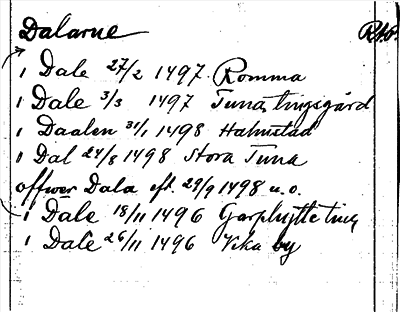 Dalarne RAP.
i Dale 27/2 1497 Romma
i Dale 3/3 1497 Tuna tingsgård
i Daalen 31/1 1498 Halmstad
i Dal 24/8 1498 Stora Tuna
offwer Dala eft. 29/9 1498 u. o.
i Dale 18/11 1496 Garphytte ting
i Dale 26/11 1496 Vika by